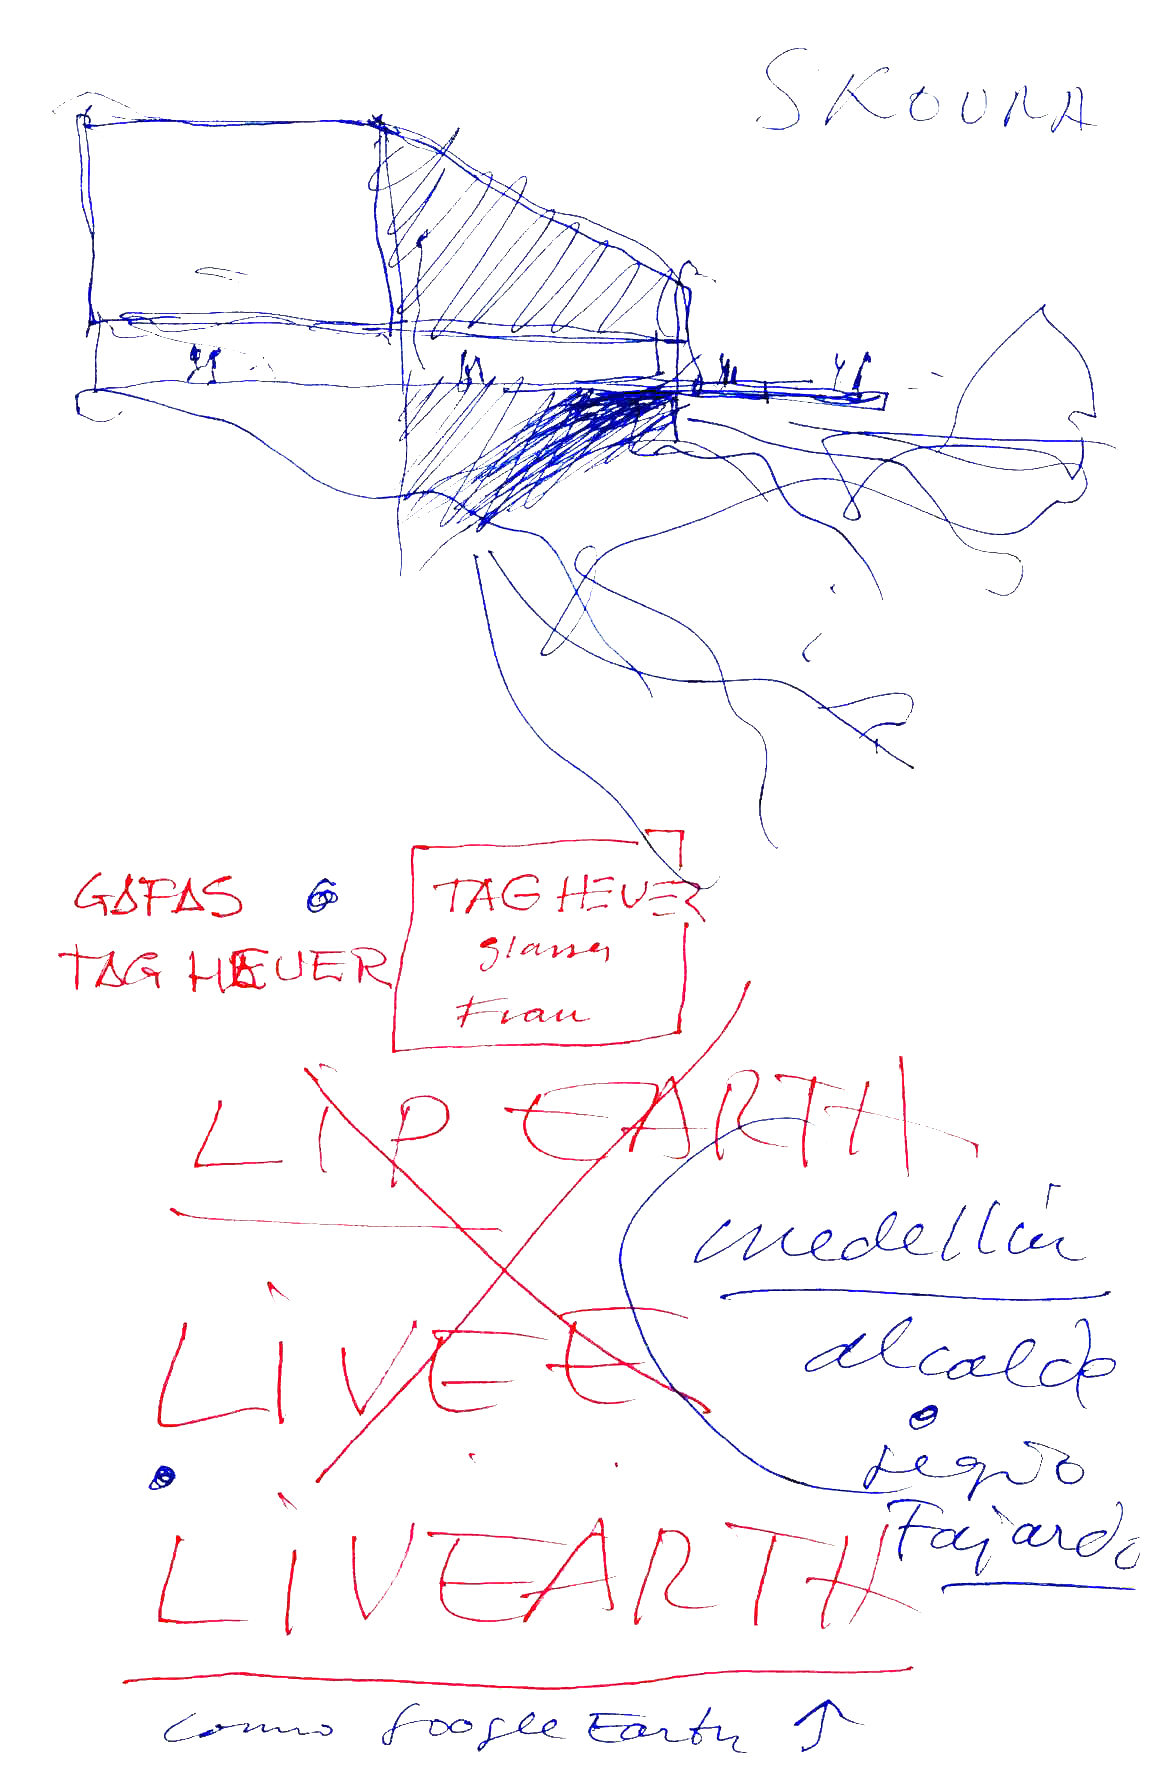 SKOURA
GAFAS
TAG HEUER
TAG HEUER
glasses
Frau
LIP EARTH
medellín
LIVE E
alcalde
Sergio
Fajardo
LIVEARTH
como Google Earth ↑